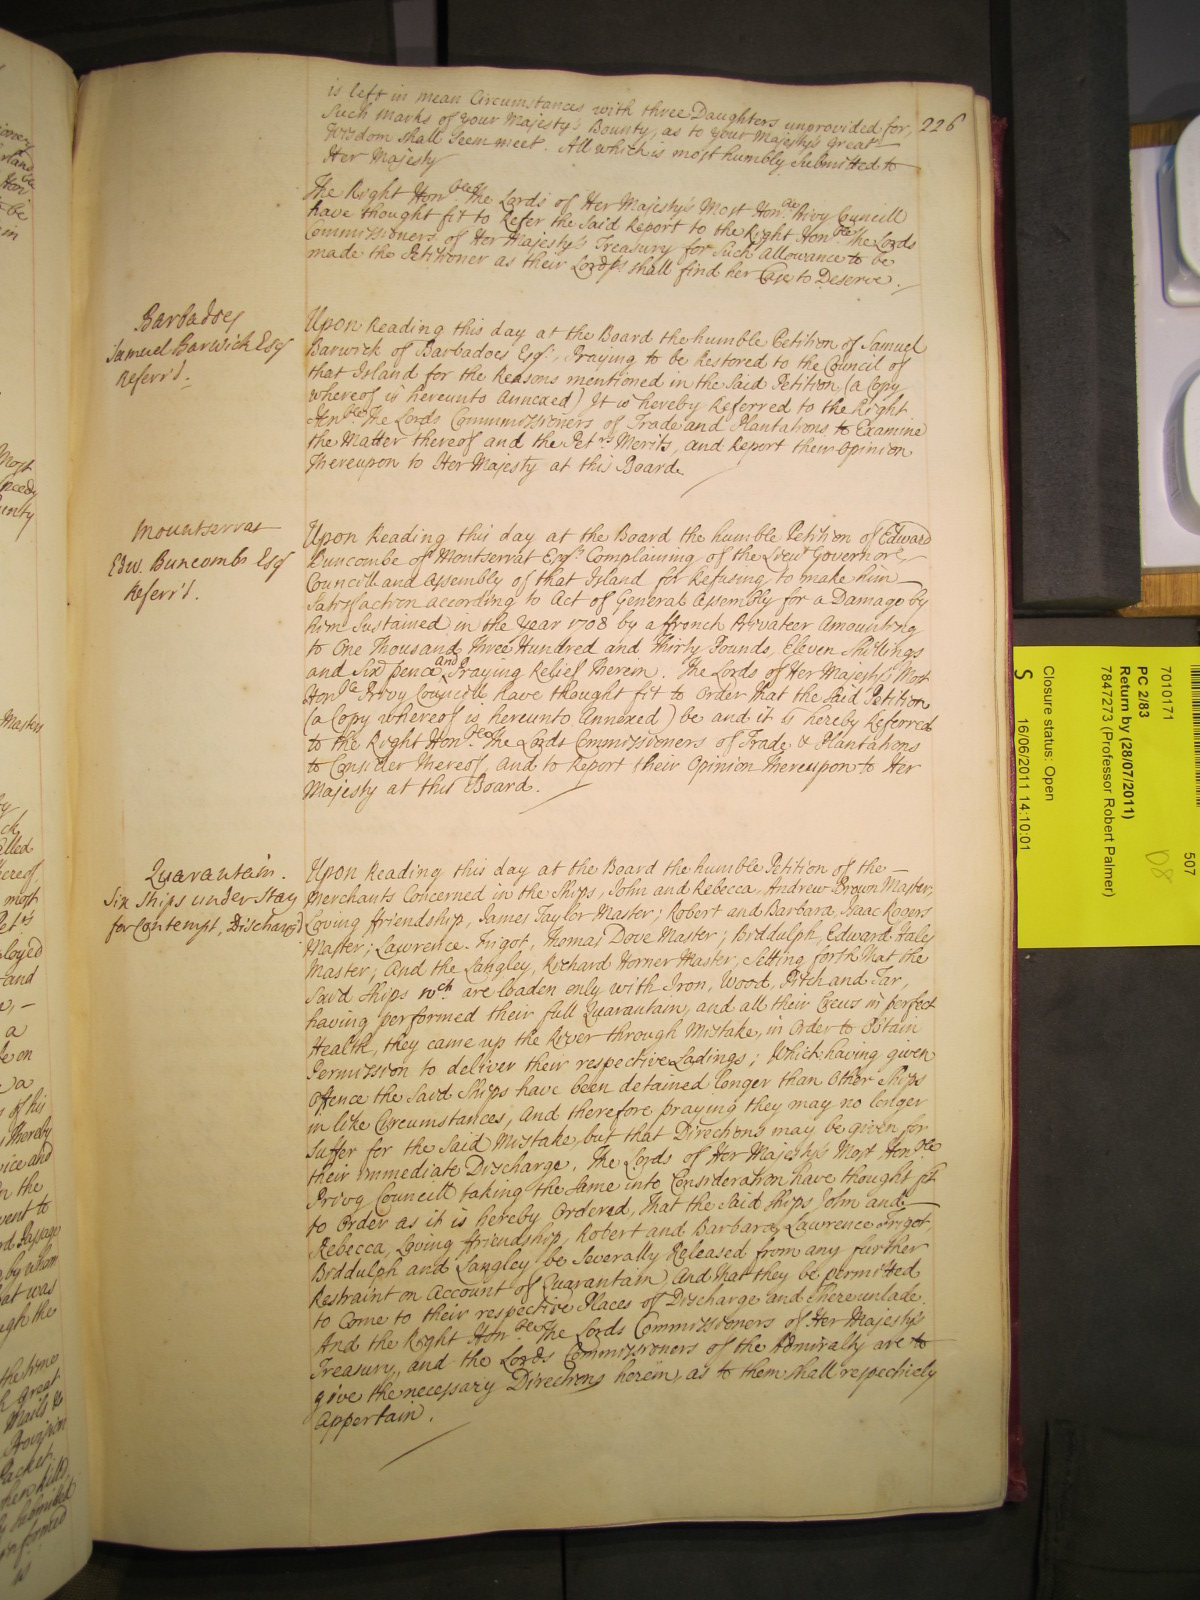 226
is left in mean Circumstances with three Daughters unprovided for,
Such marks of your Majesty's Bounty, as to your Majesty's great
Wisdom shall Seem meet. All which is most humbly Submitted to
Her Majesty
The Right Honble the Lords of Her Majesty's Most Honble Privy Councill
have thought fit to Refer the Said Report to the Right Honble the Lords
Commissioners of Her Majesty's Treasury for Such allowance to be
made the Petitioner as their Lordps shall find her Case to Deserve.
Barbadoes
Samuel Barwick Esqr
Referr'd.
Upon Reading this day at the Board the humble Petition of Samuel
Barwick of Barbadoes Esqr. Praying to be Restored to the Council of
that Island for the Reasons mentioned in the Said Petition (a Copy
whereof is hereunto Annexed) It is hereby Referred to the Right
Honble the Lords Commissioners of Trade and Plantations to Examine
the Matter thereof and the Petrs Merits, and Report their Opinion
thereupon to Her Majesty at this Board.
Mountserrat
Edw. Buncombe Esqr
Referr'd.
Upon Reading this day at the Board the humble Petition of Edward
Buncombe of Montserrat Esqr. Complaining of the Lieut Governor
Councill and Assembly of that Island for Refusing to make him
Satisfaction according to Act of General Assembly for a Damage by
him Sustained in the Year 1708 by a ffrench Privateer Amounting
to One Thousand Three Hundred and Thirty Pounds, Eleven Shillings
and Six pence and Praying Relief therein. The Lords of Her Majesty's Most
Honble Privy Councill have thought fit to Order that the Said Petition
(a Copy whereof is hereunto Annexed) be and it is hereby Referred
to the Right Honble the Lords Commissioners of Trade & Plantations
to Consider thereof, and to Report their Opinion thereupon to Her
Majesty at this Board.
Quarantain.
Six Ships under Stay
for Contempt, Discharg'd
Upon Reading this day at the Board the humble Petition of the
Merchants Concerned in the Ships, John and Rebecca, Andrew Brown Master;
Loving ffriendship, James Taylor Master; Robert and Barbara, Isaac Rogers
Master; Lawrence Frigot, Thomas Dove Master; Biddulph, Edward Hales
Master; And the Langley, Richard Horner Master, Setting forth that the
Said Ships wch are loaden only with Iron, Wood, Pitch and Tar,
having performed their full Quarantain, and all their Crews in perfect
Health, they came up the River through Mistake, in Order to Obtain
Permission to deliver their respective Ladings; Which having given
Offence the Said Ships have been detained longer than Other Ships
in like Circumstances, And therefore praying they may no longer
Suffer for the Said Mistake, but that Directions may be given for
their immediate Discharge. The Lords of Her Majesty's Most Honble
Privy Councill taking the Same into Consideration have thought fit
to Order as it is hereby Ordered, That the Said Ships John and
Rebecca, Loving ffriendship, Robert and Barbara, Lawrence Frigot,
Biddulph and Langley be Severally Released from any further
Restraint on Account of Quarantain, And that they be permitted
to Come to their respective Places of Discharge and there unlade.
And the Right Honble the Lords Commissioners of Her Majesty's
Treasury, and the Lords Commissioners of the Admiralty are to
give the necessary Directions herein, as to them shall respectively
Appertain.
7010171
507
PC 2/83
Return by (28/07/2011)
7847273 (Professor Robert Palmer)
D8
Closure status: Open
S
16/06/2011 14:10:01